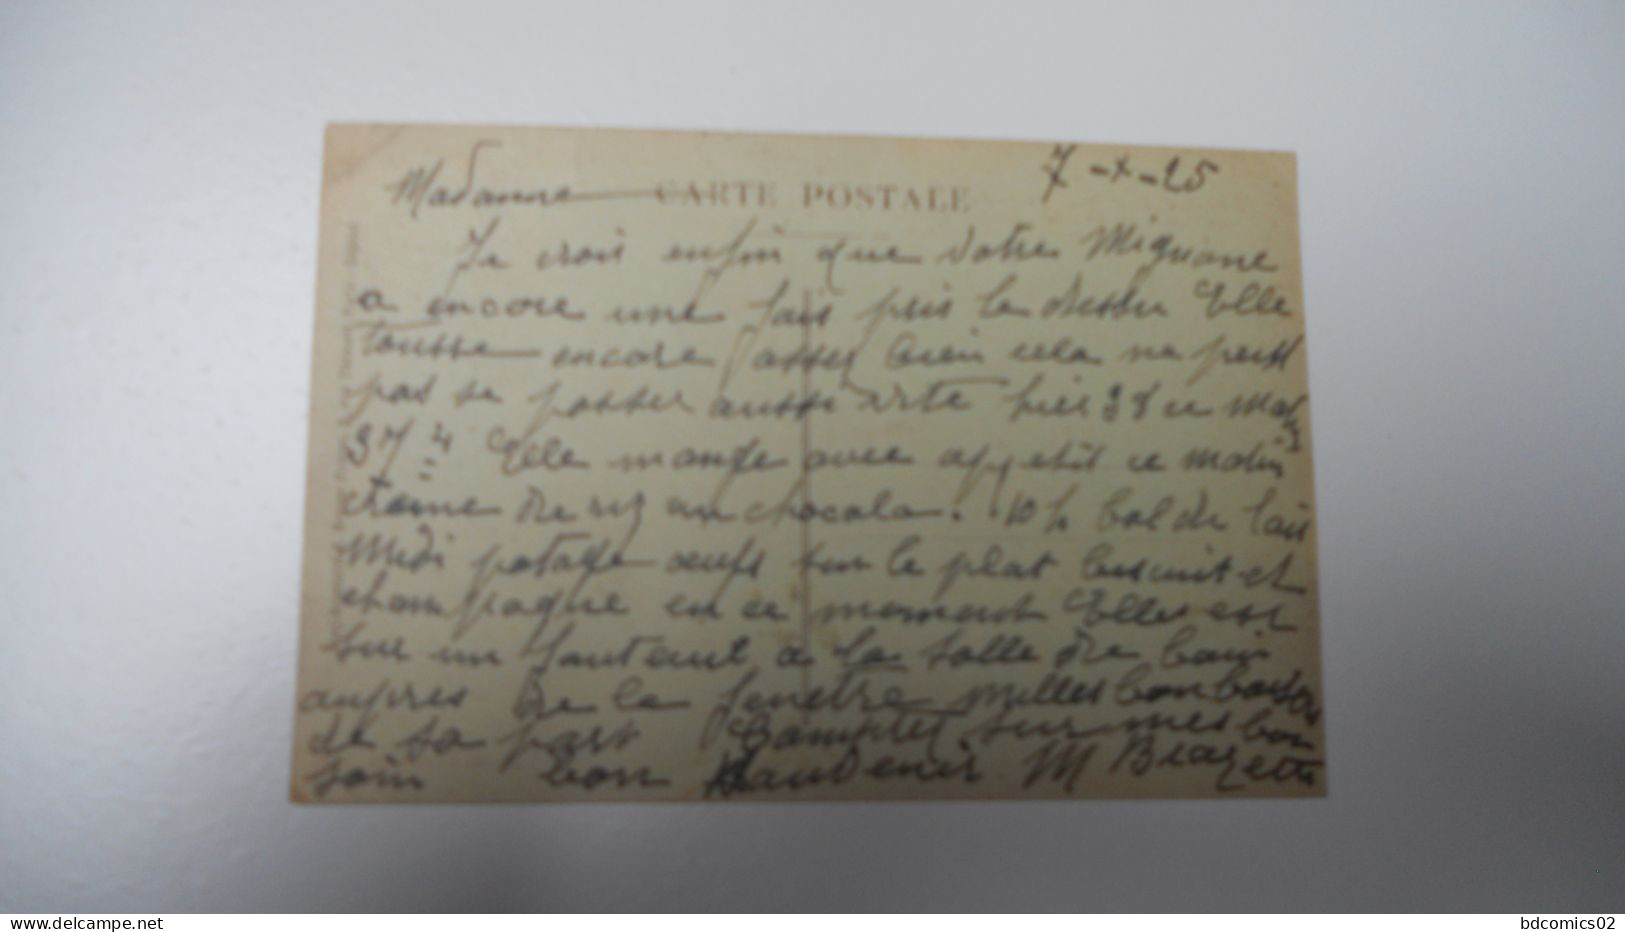 Madame CARTE POSTALE 7-X-25
Je crois enfin que votre Mignone
a encore une fois pris le dessu Elle
tousse encore asser bien cela ne peut
pas se passer aussi vite hier 38 ce matin
37 4 Elle mange avec appetit ce matin
crème de riz un chocola. 10 h bol de lait
Midi potage œufs sur le plat biscuit et
champagne en ce moment Elle est
sur un fauteuil a la salle de bain
aupres de la fenetre milles bon baisers
de sa part Comptez sur mes bon
soin bon souvenir M
bdcomics02
www.delcampe.net